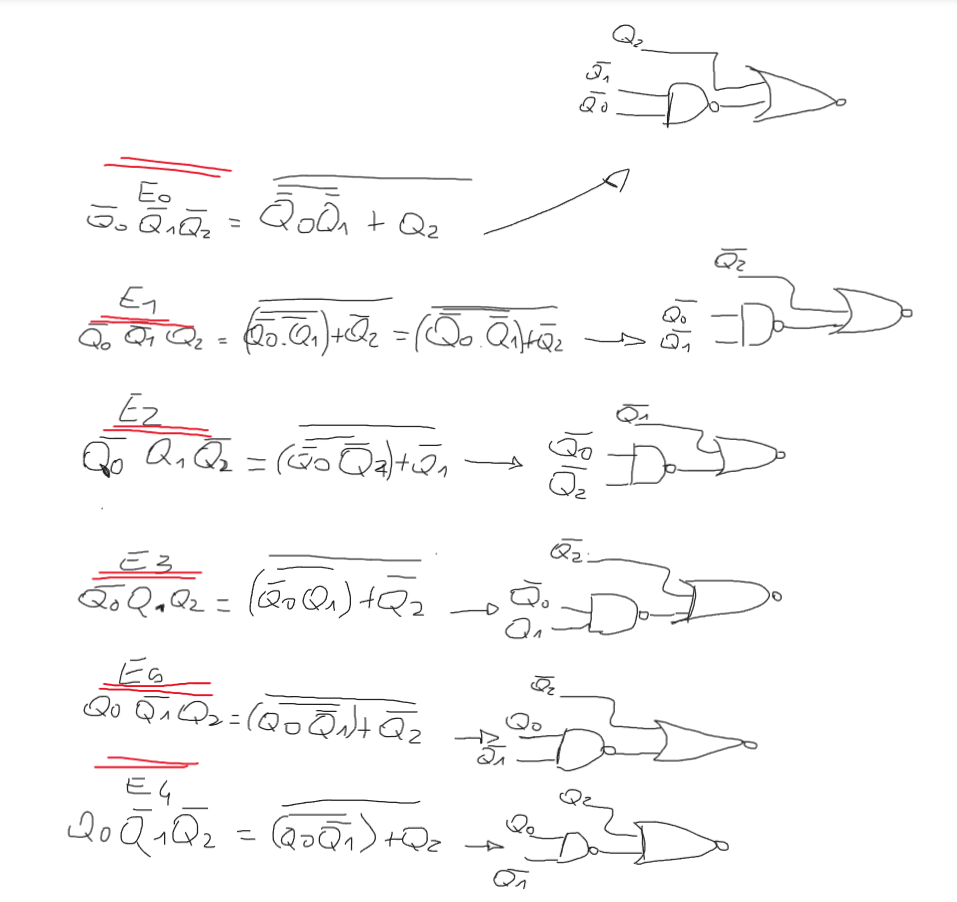 Q₂
Q̅₁
Q̅₀
E₀
Q̅₀ Q̅₁ Q̅₂ = \overline{\overline{Q̅₀Q̅₁} + Q₂}
E1
Q̅₀ Q̅₁ Q₂ = \overline{(\overline{Q̅₀.Q̅₁})+Q̅₂} = \overline{(\overline{Q̅₀.Q̅₁})+Q̅₂}
Q̅₂
Q̅₀
Q̅₁
E2
Q̅₀ Q₁ Q̅₂ = \overline{(\overline{Q̅₀ Q̅₂})+Q̅₁}
Q̅₁
Q̅₀
Q̅₂
E3
Q̅₀ Q₁ Q₂ = \overline{(\overline{Q̅₀ Q₁})+Q̅₂}
Q̅₂
Q̅₀
Q₁
E5
Q₀ Q̅₁ Q₂ = \overline{(\overline{Q₀ Q̅₁})+Q̅₂}
Q̅₂
Q₀
Q̅₁
E4
Q₀ Q̅₁ Q̅₂ = \overline{(\overline{Q₀Q̅₁})+Q₂}
Q₂
Q₀
Q̅₁